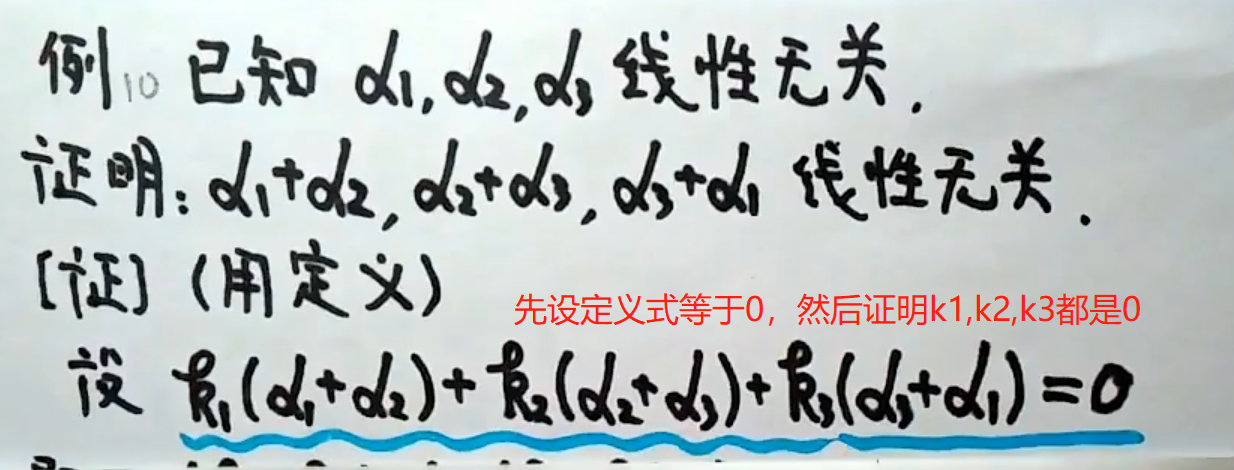 例10 已知 α1,α2,α3 线性无关.
证明:α1+α2,α2+α3,α3+α1 线性无关.
[证](用定义)
先设定义式等于0，然后证明k1,k2,k3都是0
设 k1(α1+α2)+k2(α2+α3)+k3(α3+α1)=0